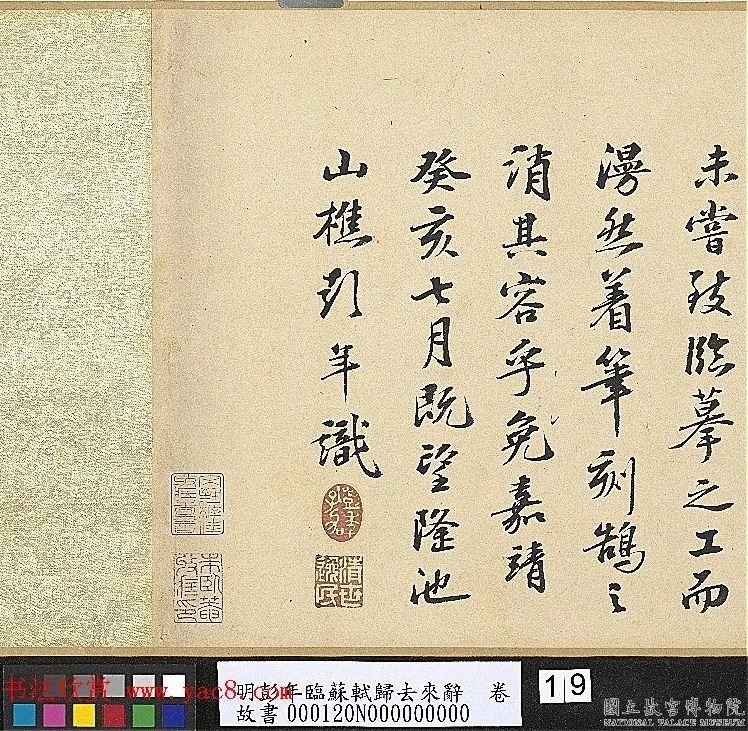 未嘗致臨摹之工而
漫然着筆刻鵠之
誚其容乎免嘉靖
癸亥七月既望隆池
山樵彭年識
清世逸民
朱臥菴收藏印
书法欣赏 www.yac8.com
明彭年臨蘇軾歸去來辭 卷
故書 000120N000000000
19
國立故宮博物院
NATIONAL PALACE MUSEUM